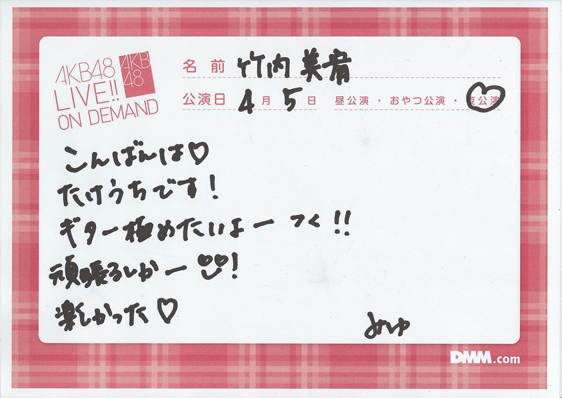 AKB48
LIVE!!
ON DEMAND
AKB
48
名前 竹内美宥
公演日 4月5日 昼公演・おやつ公演・夜公演
こんばんは♡
たけうちです!
ギター極めたいよーっく!!
頑張るしかー!
楽しかった♡
みゆ
DMM.com